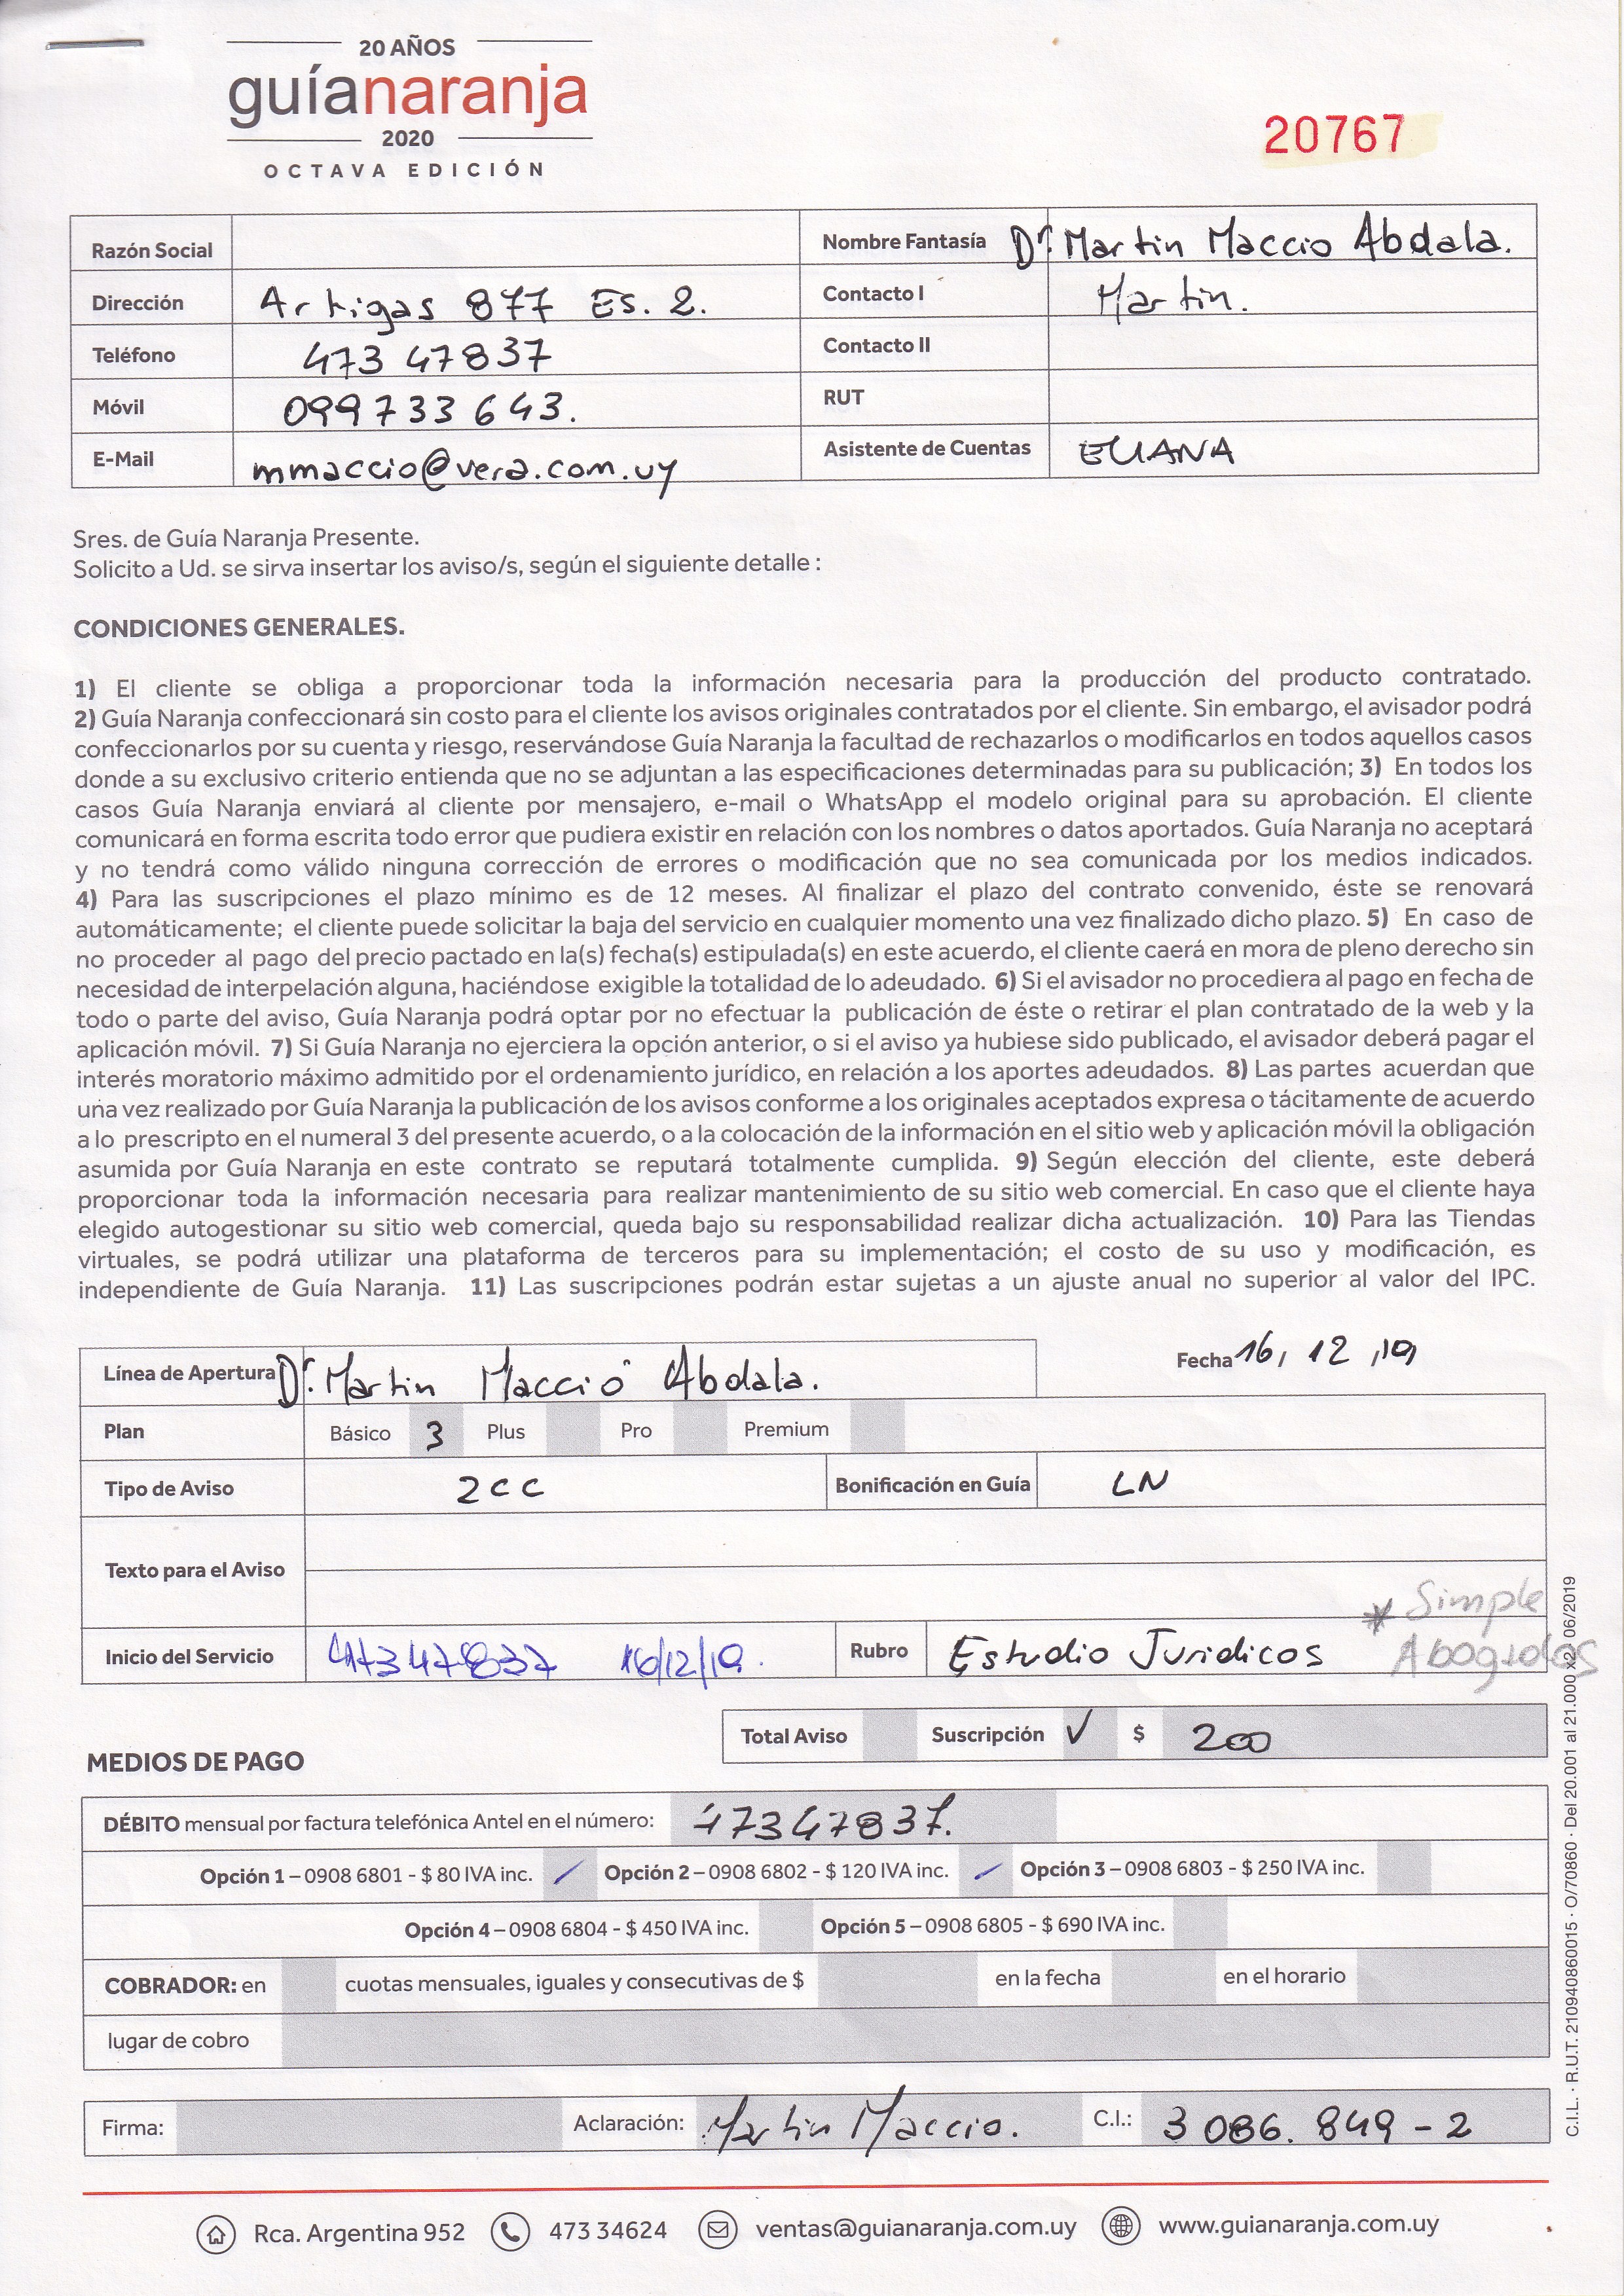 20 AÑOS
guíanaranja
2020
OCTAVA EDICIÓN
20767
Razón Social
Nombre Fantasía Dr. Martin Maccio Abdala.
Dirección Artigas 877 Es. 2.
Contacto I Martin.
Teléfono 473 47837
Contacto II
Móvil 099733643.
RUT
E-Mail mmaccio@vera.com.uy
Asistente de Cuentas ELIANA
Sres. de Guía Naranja Presente.
Solicito a Ud. se sirva insertar los aviso/s, según el siguiente detalle :
CONDICIONES GENERALES.
1) El cliente se obliga a proporcionar toda la información necesaria para la producción del producto contratado.
2) Guía Naranja confeccionará sin costo para el cliente los avisos originales contratados por el cliente. Sin embargo, el avisador podrá
confeccionarlos por su cuenta y riesgo, reservándose Guía Naranja la facultad de rechazarlos o modificarlos en todos aquellos casos
donde a su exclusivo criterio entienda que no se adjuntan a las especificaciones determinadas para su publicación; 3) En todos los
casos Guía Naranja enviará al cliente por mensajero, e-mail o WhatsApp el modelo original para su aprobación. El cliente
comunicará en forma escrita todo error que pudiera existir en relación con los nombres o datos aportados. Guía Naranja no aceptará
y no tendrá como válido ninguna corrección de errores o modificación que no sea comunicada por los medios indicados.
4) Para las suscripciones el plazo mínimo es de 12 meses. Al finalizar el plazo del contrato convenido, éste se renovará
automáticamente; el cliente puede solicitar la baja del servicio en cualquier momento una vez finalizado dicho plazo. 5) En caso de
no proceder al pago del precio pactado en la(s) fecha(s) estipulada(s) en este acuerdo, el cliente caerá en mora de pleno derecho sin
necesidad de interpelación alguna, haciéndose exigible la totalidad de lo adeudado. 6) Si el avisador no procediera al pago en fecha de
todo o parte del aviso, Guía Naranja podrá optar por no efectuar la publicación de éste o retirar el plan contratado de la web y la
aplicación móvil. 7) Si Guía Naranja no ejerciera la opción anterior, o si el aviso ya hubiese sido publicado, el avisador deberá pagar el
interés moratorio máximo admitido por el ordenamiento jurídico, en relación a los aportes adeudados. 8) Las partes acuerdan que
una vez realizado por Guía Naranja la publicación de los avisos conforme a los originales aceptados expresa o tácitamente de acuerdo
a lo prescripto en el numeral 3 del presente acuerdo, o a la colocación de la información en el sitio web y aplicación móvil la obligación
asumida por Guía Naranja en este contrato se reputará totalmente cumplida. 9) Según elección del cliente, este deberá
proporcionar toda la información necesaria para realizar mantenimiento de su sitio web comercial. En caso que el cliente haya
elegido autogestionar su sitio web comercial, queda bajo su responsabilidad realizar dicha actualización. 10) Para las Tiendas
virtuales, se podrá utilizar una plataforma de terceros para su implementación; el costo de su uso y modificación, es
independiente de Guía Naranja. 11) Las suscripciones podrán estar sujetas a un ajuste anual no superior al valor del IPC.
Línea de Apertura Dr. Martin Macció Abdala.
Fecha 16/ 12 /19
Plan Básico 3 Plus Pro Premium
Tipo de Aviso 2CC Bonificación en Guía LN
Texto para el Aviso
* Simple
Abogados
Inicio del Servicio 47347837 16/12/19. Rubro Estudio Juridicos
Total Aviso Suscripción ✓ $ 200
MEDIOS DE PAGO
DÉBITO mensual por factura telefónica Antel en el número: 47347837.
Opción 1 – 0908 6801 - $ 80 IVA inc. / Opción 2 – 0908 6802 - $ 120 IVA inc. / Opción 3 – 0908 6803 - $ 250 IVA inc.
Opción 4 – 0908 6804 - $ 450 IVA inc. Opción 5 – 0908 6805 - $ 690 IVA inc.
COBRADOR: en cuotas mensuales, iguales y consecutivas de $ en la fecha en el horario
lugar de cobro
Firma: Aclaración: Martin Maccio. C.I.: 3 086. 849 - 2
C.I.L. · R.U.T. 210940860015 · O/70860 · Del 20.001 al 21.000 x2) 06/2019
Rca. Argentina 952 473 34624 ventas@guianaranja.com.uy www.guianaranja.com.uy